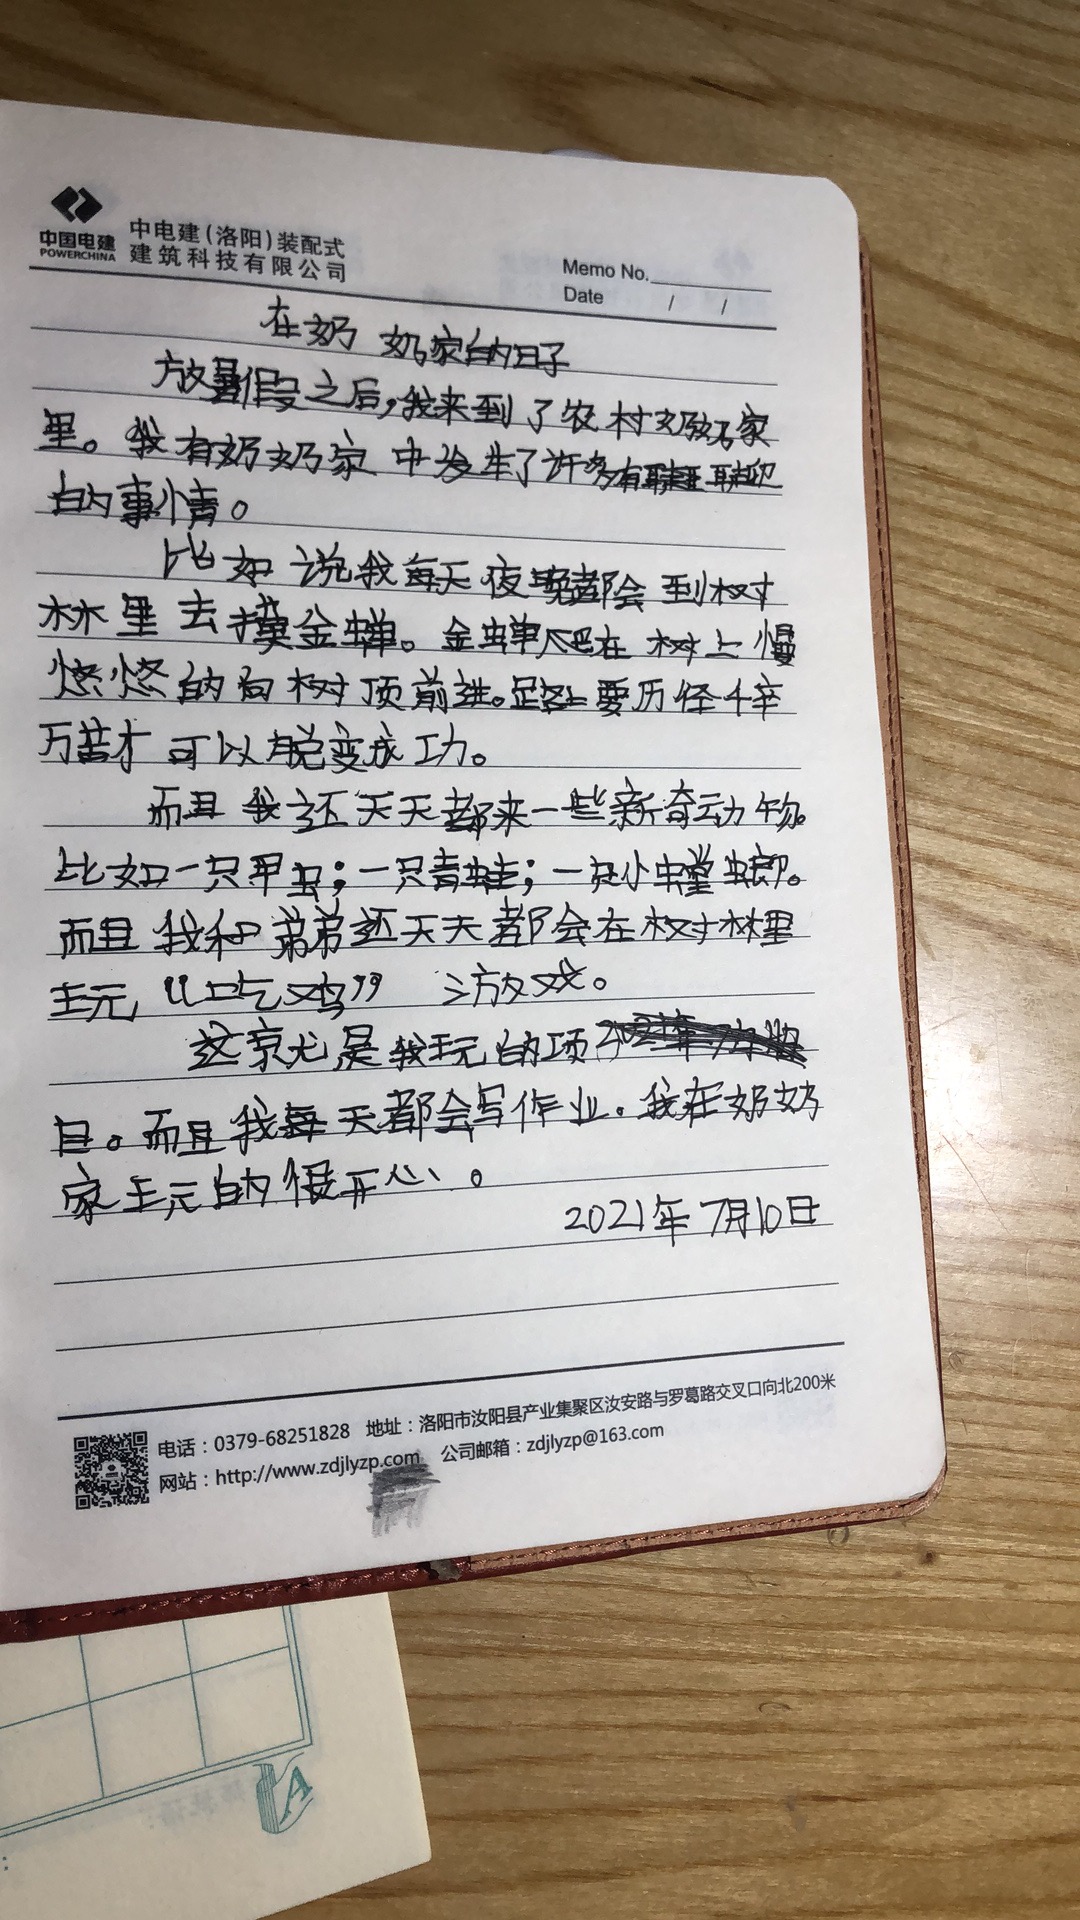 中国电建
POWERCHINA
中电建(洛阳)装配式
建筑科技有限公司
Memo No.
Date / /
在奶奶家的日子
放暑假之后,我来到了农村奶奶家
里。我有奶奶家中发生了许多有
的事情。
比如说我每天夜晚都会到树
林里去摸金蝉。金蝉爬在树上慢
悠悠的向树顶前进。足足要历经千辛
万苦才可以脱变成功。
而且我还天天都来一些新奇动物。
比如一只甲虫;一只青蛙;一只小螳螂。
而且我和弟弟还天天都会在树林里
玩“吃鸡”游戏。
这京尤是我玩的项
目。而且我每天都会写作业。我在奶奶
家玩的很开心。
2021年7月10日
电话:0379-68251828 地址:洛阳市汝阳县产业集聚区汝安路与罗葛路交叉口向北200米
网站:http://www.zdjlyzp.com 公司邮箱:zdjlyzp@163.com
A